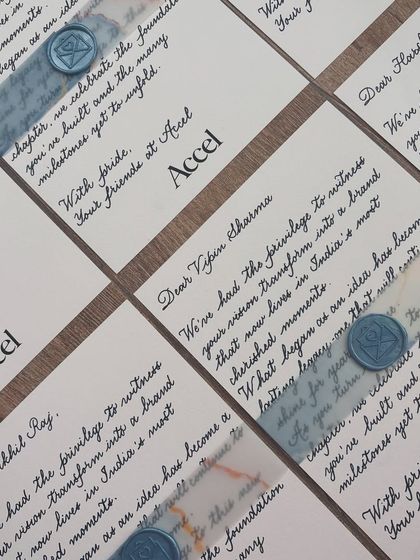 began as an idea
chapter, we celebrate the foundation
you've built and the many
milestones yet to unfold.
With pride,
Your friends at Accel
Accel
With
Your f
Dear Hard
We've
your
that
cher
Dear Vipin Sharma
We've had the privilege to witness
your vision transform into a brand
that now lives in India's most
cherished moments.
What began as an idea has become
lasting legacy
shine for years
As you turn
you've built and
milestones yet
With p
Your
cel
khil Raj,
had the privilege to witness
r vision transform into a brand
t now lives in India's most
shed moments.
began as an idea has become a
that will continue to
to this new
the foundation
many